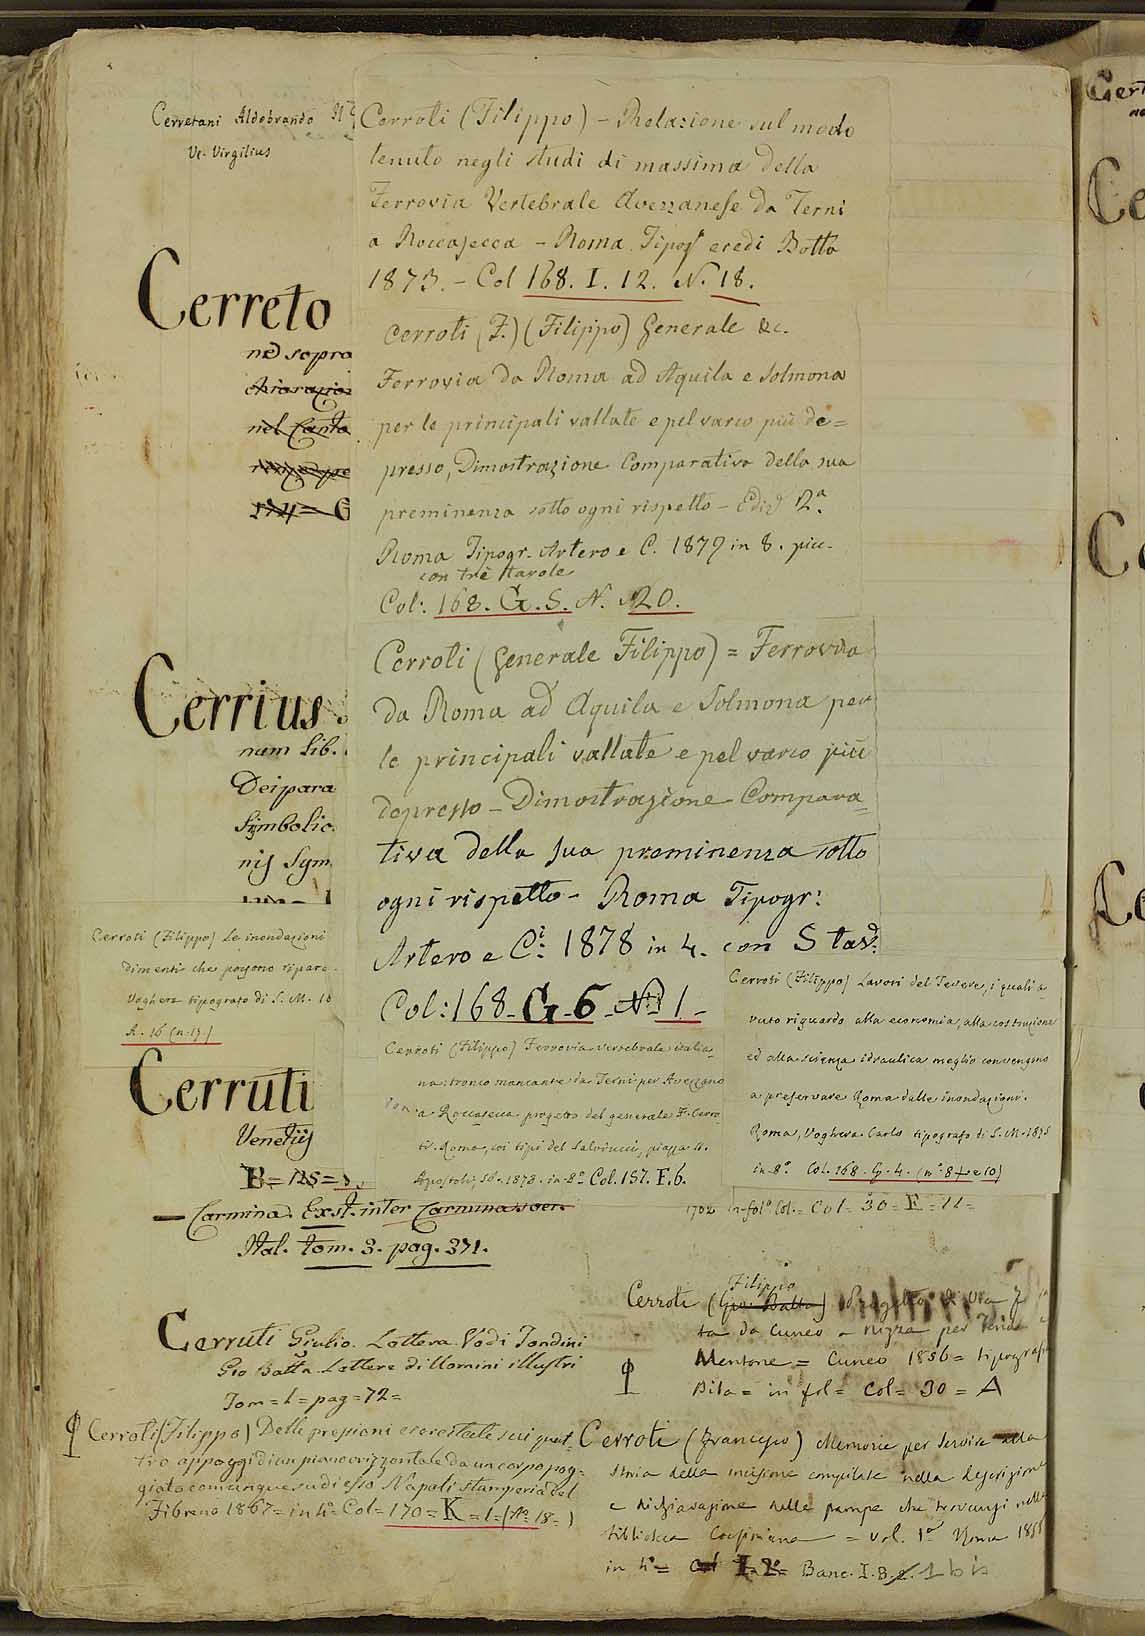 Cerretani Aldobrando
Vc. Virgilius
Cerroti (Filippo) - Relazione sul modo
tenuto negli studi di massima della
Ferrovia Vertebrale Avezzanese da Terni
a Roccasecca - Roma Tipogr eredi Botta
1873. - Col 168. I. 12. N. 18.
Cerreto
sopra
nel Canto
Cerroti (F.) (Filippo) Generale &c.
Ferrovia da Roma ad Aquila e Solmona
per le principali vallate e pel varco più de=
presso, Dimostrazione Comparativa della sua
preminenza sotto ogni rispetto - Ediz 2ª.
Roma Tipogr. Artero e C. 1879 in 8. picc.
con trè tavole
Col: 168. G. 5. N. 20.
Cerrius
num Lib.
Deipara
Symbolic
nis Sym
Cerroti (Generale Filippo) = Ferrovia
da Roma ad Aquila e Solmona per
le principali vallate e pel varco più
depresso - Dimostrazione Compara=
tiva della sua preminenza sotto
ogni rispetto - Roma Tipogr:
Artero e Ci. 1878 in 4. con 5 tav.
Col: 168 - G - 6 - N. 1 -
Cerroti (Filippo) Le inondazioni
dimenti che possono ripara
Voghera tipografo di S. M. 18
A. 16 (n. 17.)
Cerruti
Venetiis
B = 125 =
- Carmina. Exst. inter Carmina
Ital. tom. 3. pag. 371.
Cerroti (Filippo) Ferrovia vertebrale italia=
na: tronco mancante da Terni per Avezzano
a Roccasecca progetto del generale F. Cerro
ti. Roma, coi tipi del Salviucci, piazza SS.
Apostoli, 56. 1873. in 8º Col. 157. F. 6.
Cerroti (Filippo) Lavori del Tevere, i quali a=
vuto riguardo alla economia, alla costruzione
ed alla scienza idraulica meglio convengono
a preservare Roma dalle inondazioni.
Roma, Voghera Carlo tipografo di S. M. 1875
in 8º. Col. 168. G. 4. (nº 8 e 10)
1702 in folº Col. = Col = 30 = E = 11 =
Cerruti Giulio. Lettera. Vedi Tondini
Gio Batta. Lettere di Uomini illustri
Tom = 1 = pag = 72 =
Filippo
Cerroti (Gio: Batta) Progetto di via
ta da Cuneo a Nizza per Tenda
Mentone = Cuneo 1856 = tipografia
in fol = Col = 30 = A
Cerroti (Filippo) Delle pressioni esercitate sui quat=
tro appoggi di un piano orizzontale da un corpo pog=
giato comunque su di esso Napoli stamperia del
Fibreno 1867 = in 4º = Col = 170 = K = 1 = (Nº 18 = )
Cerroti (Francesco) Memorie per servire alla
storia della incisione compilate nella descrizione
e dichiarazione delle stampe che trovansi nella
biblioteca Corsiniana = vol. 1º Roma 1858
in 4º = Col I. 2º = Banc. I. B. 2. 1 bis